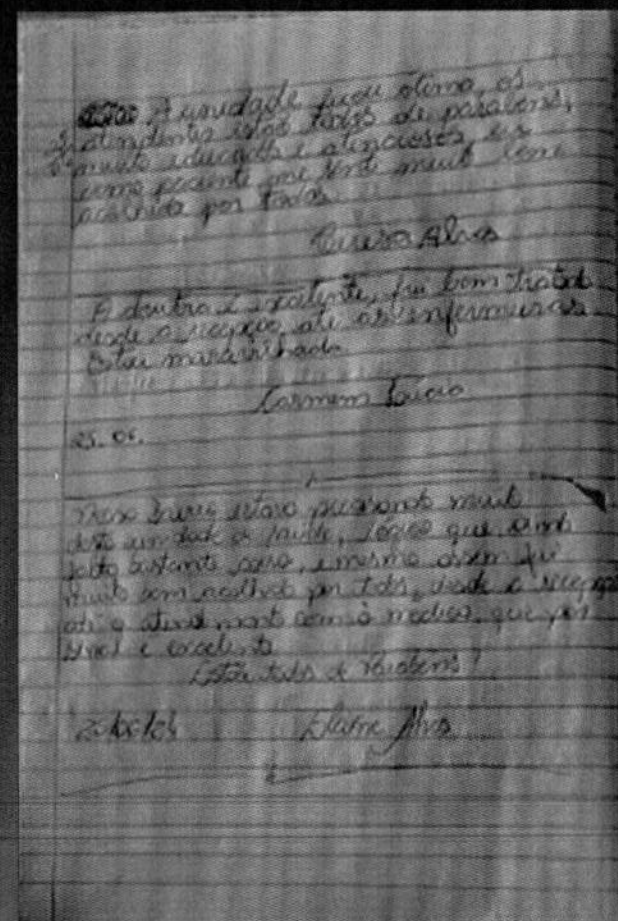 A unidade ficou ótima, os
atendentes estão todos de parabéns,
muito educados e atenciosos, eu
como paciente me senti muito bem
acolhida por todos
Alves
A doutora é excelente, fui bem tratada
desde a recepção até as enfermeiras
Estou maravilhada
Carmem Lúcia
25.05.
Nosso bairro estava precisando muito
desta unidade de saúde, lógico que ainda
bastante, e mesmo assim fui
muito bem acolhida por todos, desde a recepção
até o atendimento com a médica, que por
sinal é excelente
Estão todos de Parabéns!
Elaine Alves